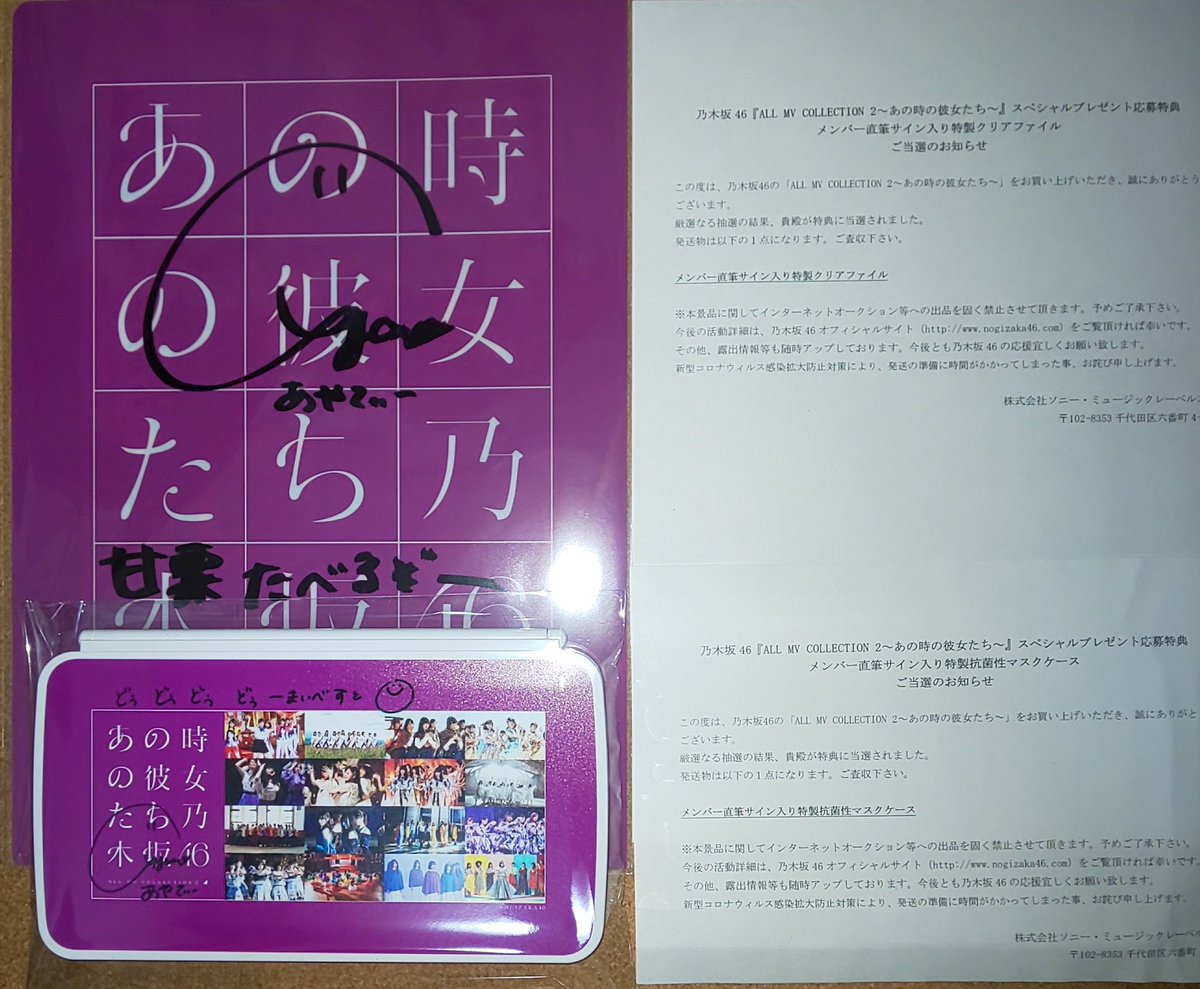 あの時
の彼女
たち乃
木坂46
あやてぃー
甘栗たべるぞー
どぅ どぅ どぅ どぅーまいべすと
あの時
の彼女
たち乃
木坂46
ALL MV COLLECTION 2
あやてぃー
NOGIZAKA46
乃木坂46『ALL MV COLLECTION 2～あの時の彼女たち～』スペシャルプレゼント応募特典
メンバー直筆サイン入り特製クリアファイル
ご当選のお知らせ
この度は、乃木坂46の「ALL MV COLLECTION 2～あの時の彼女たち～」をお買い上げいただき、誠にありがとう
ございます。
厳選なる抽選の結果、貴殿が特典に当選されました。
発送物は以下の１点になります。ご査収下さい。
メンバー直筆サイン入り特製クリアファイル
※本景品に関してインターネットオークション等への出品を固く禁止させて頂きます。予めご了承下さい。
今後の活動詳細は、乃木坂46オフィシャルサイト（http://www.nogizaka46.com）をご覧頂ければ幸いです。
その他、露出情報等も随時アップしております。今後とも乃木坂46の応援宜しくお願い致します。
新型コロナウィルス感染拡大防止対策により、発送の準備に時間がかかってしまった事、お詫び申し上げます。
株式会社ソニー・ミュージックレーベル
〒102-8353 千代田区六番町 4-
乃木坂46『ALL MV COLLECTION 2～あの時の彼女たち～』スペシャルプレゼント応募特典
メンバー直筆サイン入り特製抗菌性マスクケース
ご当選のお知らせ
この度は、乃木坂46の「ALL MV COLLECTION 2～あの時の彼女たち～」をお買い上げいただき、誠にありがと
ございます。
厳選なる抽選の結果、貴殿が特典に当選されました。
発送物は以下の１点になります。ご査収下さい。
メンバー直筆サイン入り特製抗菌性マスクケース
※本景品に関してインターネットオークション等への出品を固く禁止させて頂きます。予めご了承下さい。
今後の活動詳細は、乃木坂46オフィシャルサイト（http://www.nogizaka46.com）をご覧頂ければ幸いです。
その他、露出情報等も随時アップしております。今後とも乃木坂46の応援宜しくお願い致します。
新型コロナウィルス感染拡大防止対策により、発送の準備に時間がかかってしまった事、お詫び申し上げます。
株式会社ソニー・ミュージックレーベル
〒102-8353 千代田区六番町